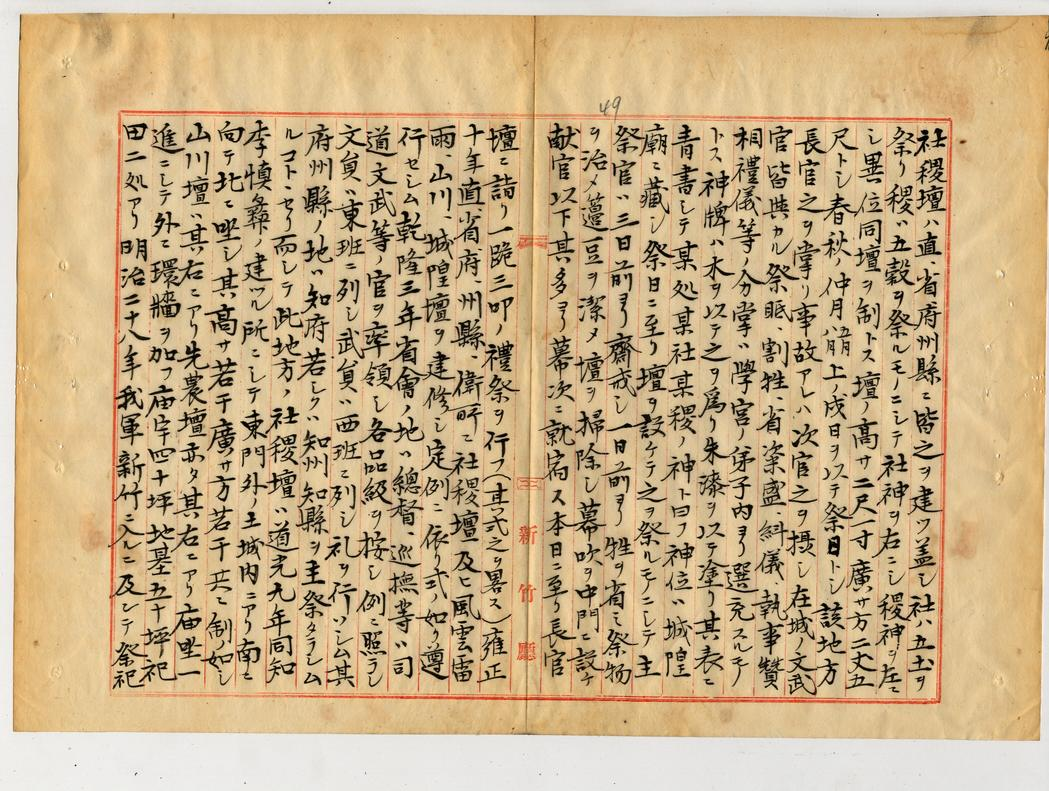 49
社稷壇ハ直省府州縣ニ皆之ヲ建ツ蓋シ社ハ五土ヲ
祭リ稷ハ五穀ヲ祭ルモノニシテ社神ヲ右ニシ稷神ヲ左ニ
シ異位同壇ヲ制トス壇ノ高サ二尺一寸廣サ方二丈五
尺トシ春秋ノ仲月上ノ戊日ヲ以テ祭日トシ該地方
長官之ヲ掌リ事故アレハ次官之ヲ摂シ在城ノ文武
官皆與カル祭眂、割牲、省粢盛、糾儀、執事、贊
相禮儀等ノ分掌ハ學官ノ弟子内ヨリ選充スルモノ
トス神牌ハ木ヲ以テ之ヲ爲リ朱漆ヲ以テ塗リ其表ニ
青書シテ某処某社某稷ノ神ト曰フ神位ハ城隍
廟ニ藏シ祭日ニ至リ壇ヲ設ケテ之ヲ祭ルモノニシテ主
祭官ハ三日前ヨリ齋戒シ一日前ヨリ牲ヲ省ミ祭物
ヲ治メ籩豆ヲ潔メ壇ヲ掃除シ幕次ヲ中門ニ設ケ
献官以下其多ヨリ幕次ニ就宿ス本日ニ至リ長官
新竹廳
壇ニ詣リ一跪三叩ノ禮祭ヲ行フ（其式之ヲ畧ス）雍正
十年直省、府、州縣、衛所ニ社稷壇及ヒ風雲雷
雨、山川、城隍壇ヲ建修シ定例ニ依リ式ノ如ク遵
行セシム乾隆三年省會ノ地ハ總督、巡撫等ハ司
道文武等ノ官ヲ率領シ各品級ヲ按シ例ニ照ラシ
文員ハ東班ニ列シ武員ハ西班ニ列シ礼ヲ行ハシム其
府州縣ノ地ハ知府若シクハ知州知縣ヲ主祭タラシム
ルコトヽセリ而シテ此地方ノ社稷壇ハ道光九年同知
李慎彝ノ建ツル所ニシテ東門外ノ土城内ニアリ南ニ
向テ北ニ坐シ其高サ若干廣サ方若干共ニ制ノ如シ
山川壇ハ其右ニアリ先農壇亦タ其右ニアリ庙堂一
進ニシテ外ニ環牆ヲ加フ庙宇四十坪地基五十坪祀
田二処アリ明治二十八年我軍新竹ニ入ルニ及ンテ祭祀